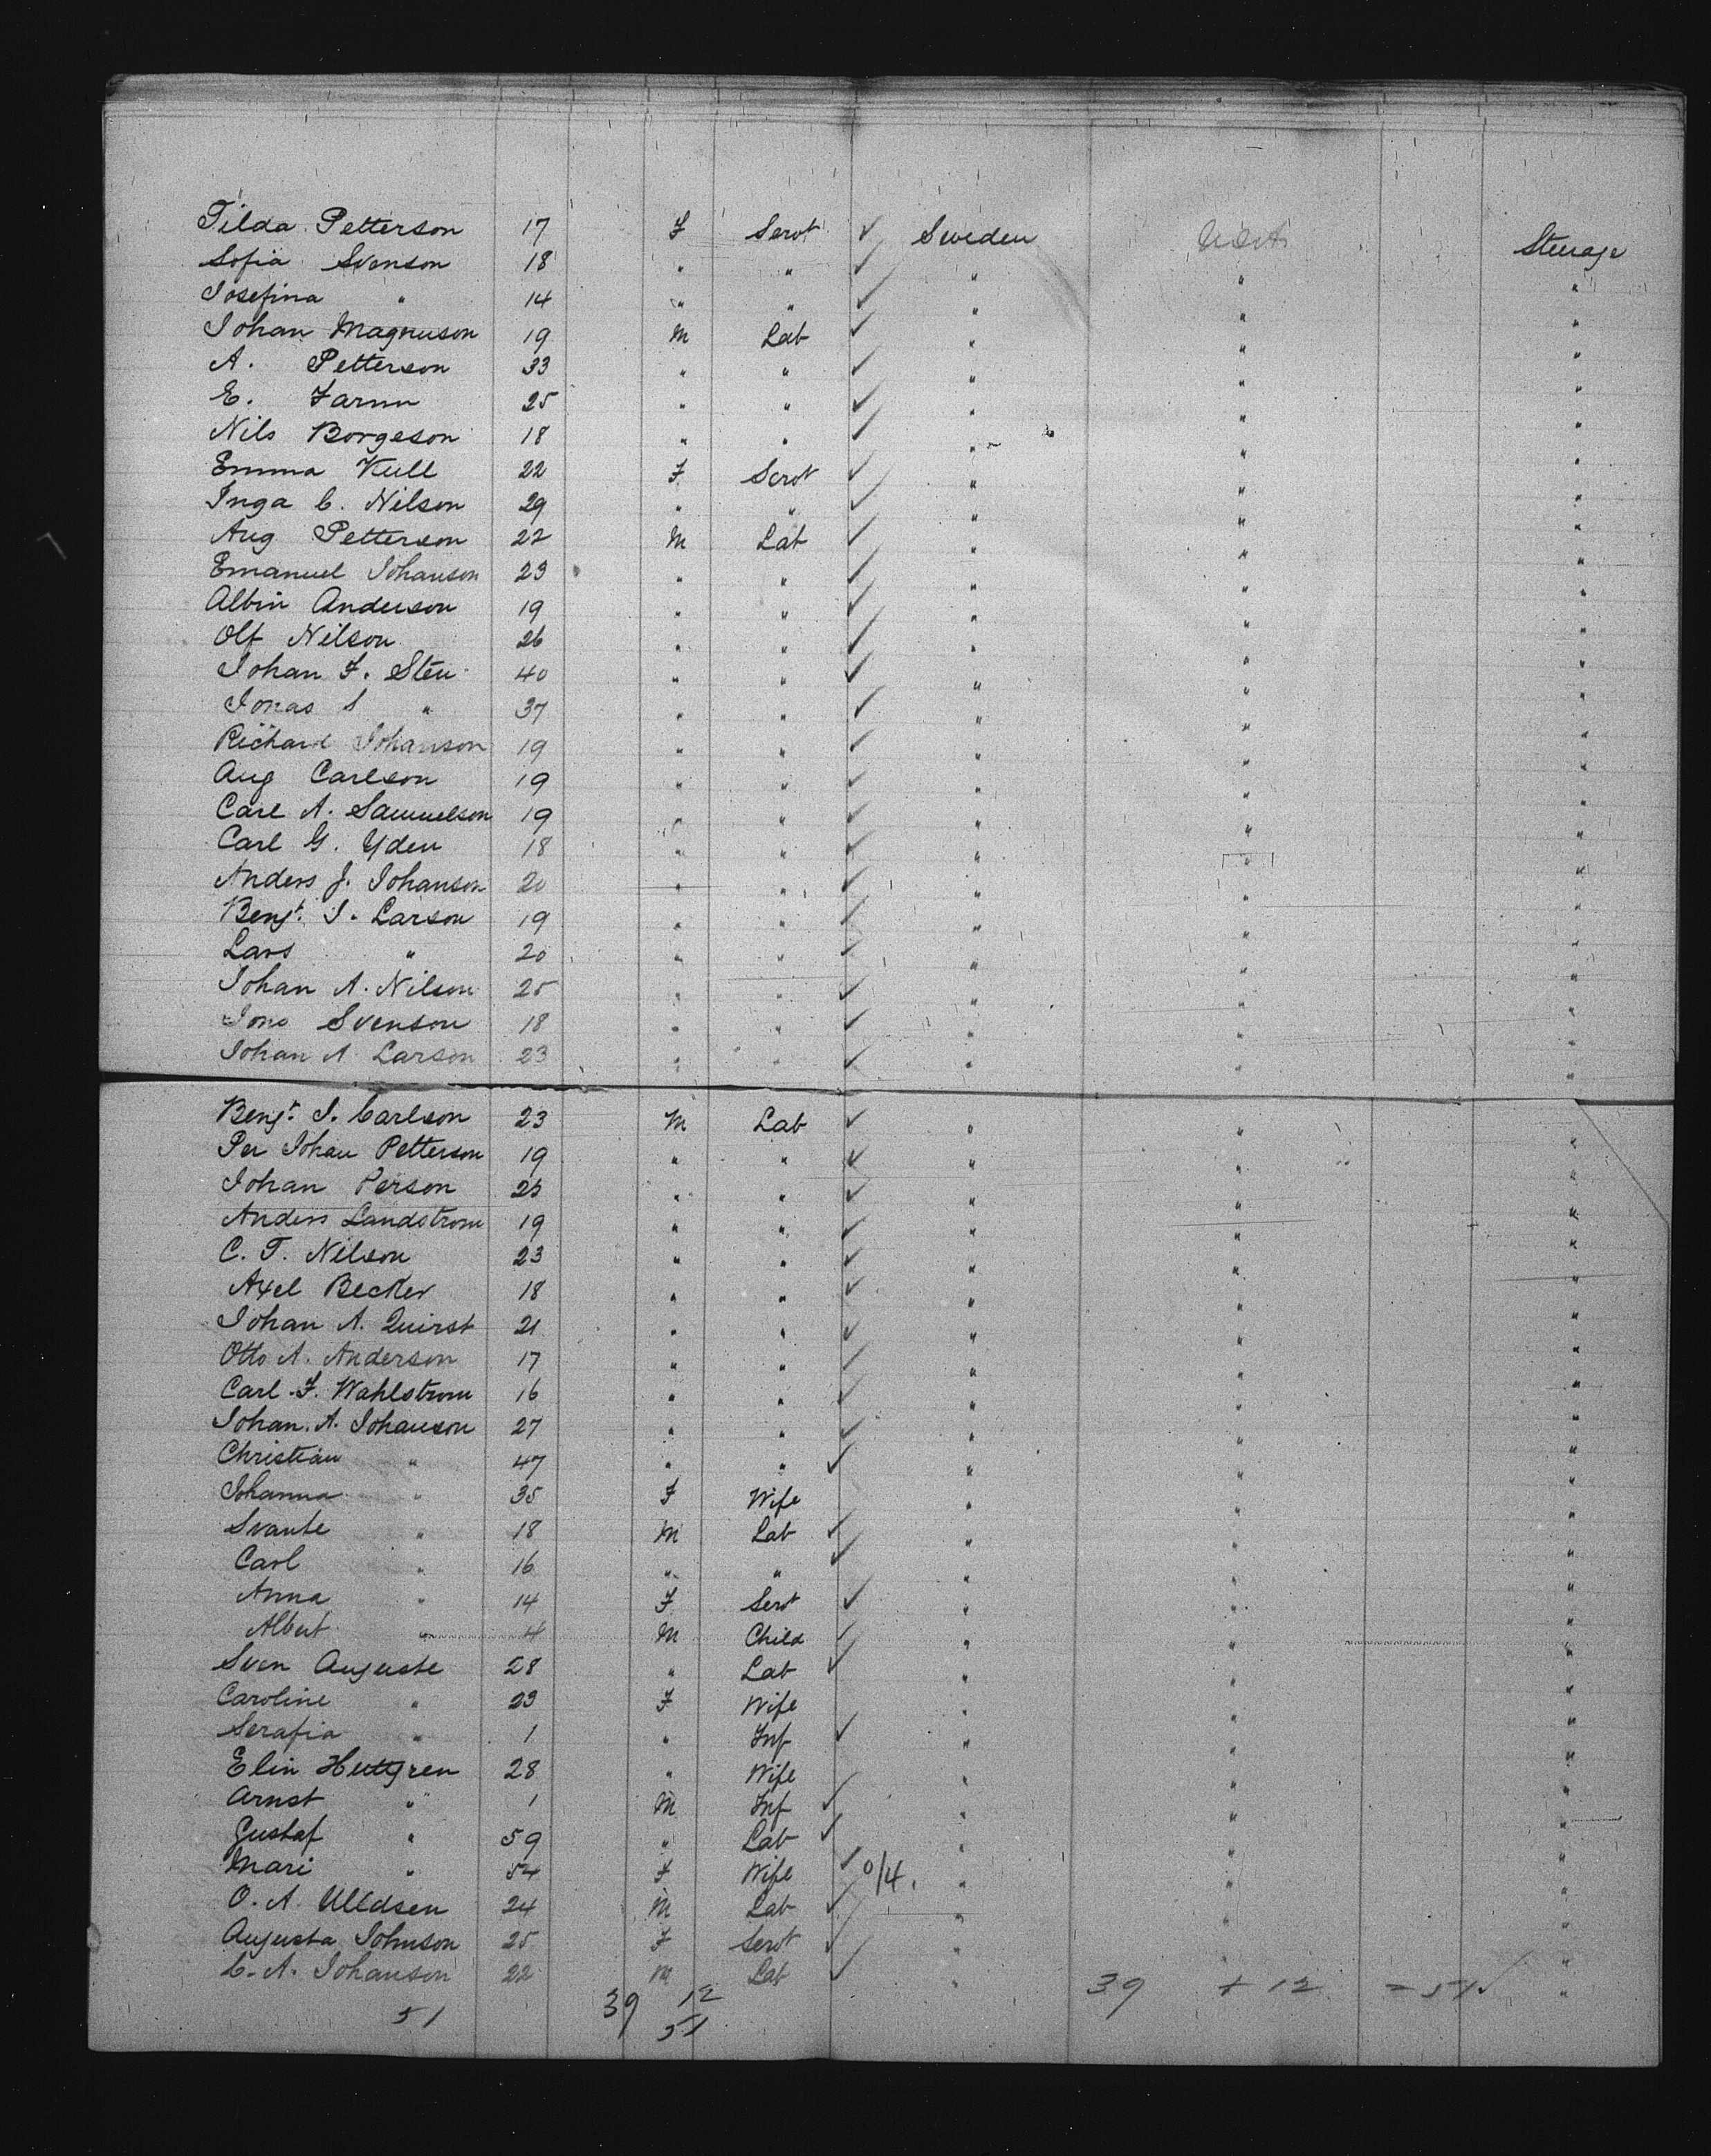 Tilda Petterson 17 F Servt ✓ Sweden U S A Steerage
Sofia Svenson 18 " " ✓ " " "
Josefina " 14 " " ✓ " " "
Johan Magnuson 19 M Lab ✓ " " "
A. Petterson 33 " " ✓ " " "
E. 25 " " ✓ " " "
Nils Borgeson 18 " " ✓ " " "
Emma Kull 22 F Servt ✓ " " "
Inga C. Nilson 29 " " ✓ " " "
Aug Petterson 22 M Lab ✓ " " "
Emanuel Johanson 23 " " ✓ " " "
Albin Anderson 19 " " ✓ " " "
Olf Nilson 26 " " ✓ " " "
Johan F. Sten 40 " " ✓ " " "
Jonas S " 37 " " ✓ " " "
Richard Johanson 19 " " ✓ " " "
Aug Carlson 19 " " ✓ " " "
Carl A. Samuelson 19 " " ✓ " " "
Carl G. Yden 18 " " ✓ " " "
Anders J. Johanson 20 " " ✓ " " "
Bengt. J. Larson 19 " " ✓ " " "
Lars " 20 " " ✓ " " "
Johan A. Nilson 25 " " ✓ " " "
Jons Svenson 18 " " ✓ " " "
Johan A Larson 23 " " ✓ " " "
Bengt. J. Carlson 23 M Lab ✓ " " "
Per Johan Petterson 19 " " ✓ " " "
Johan Person 25 " " ✓ " " "
Anders Landstrom 19 " " ✓ " " "
C. T. Nilson 23 " " ✓ " " "
Axel Becker 18 " " ✓ " " "
Johan A. Quirst 21 " " ✓ " " "
Otto A. Anderson 17 " " ✓ " " "
Carl F. Wahlstrom 16 " " ✓ " " "
Johan. A. Johanson 27 " " ✓ " " "
Christian " 47 " " ✓ " " "
Johanna " 35 F Wife " " "
Svante " 18 M Lab ✓ " " "
Carl " 16 " " ✓ " " "
Anna " 14 F Servt ✓ " " "
Albert " 4 M Child ✓ " " "
Sven Auguste 28 " Lab ✓ " " "
Caroline " 23 F Wife " " "
Serafia " 1 " Inf ✓ " " "
Elin Huttgren 28 " Wife " " "
Arnst " 1 M Inf ✓ " " "
Gustaf " 59 " Lab ✓ " " "
Mari " 54 F Wife ✓ 0/4. " " "
O. A. Ulldsen 24 M Lab ✓ " " "
Augusta Johnson 25 F Servt ✓ " " "
C. A. Johanson 22 M Lab ✓ " "
39 + 12 = 51 ✓
51 39 12
51